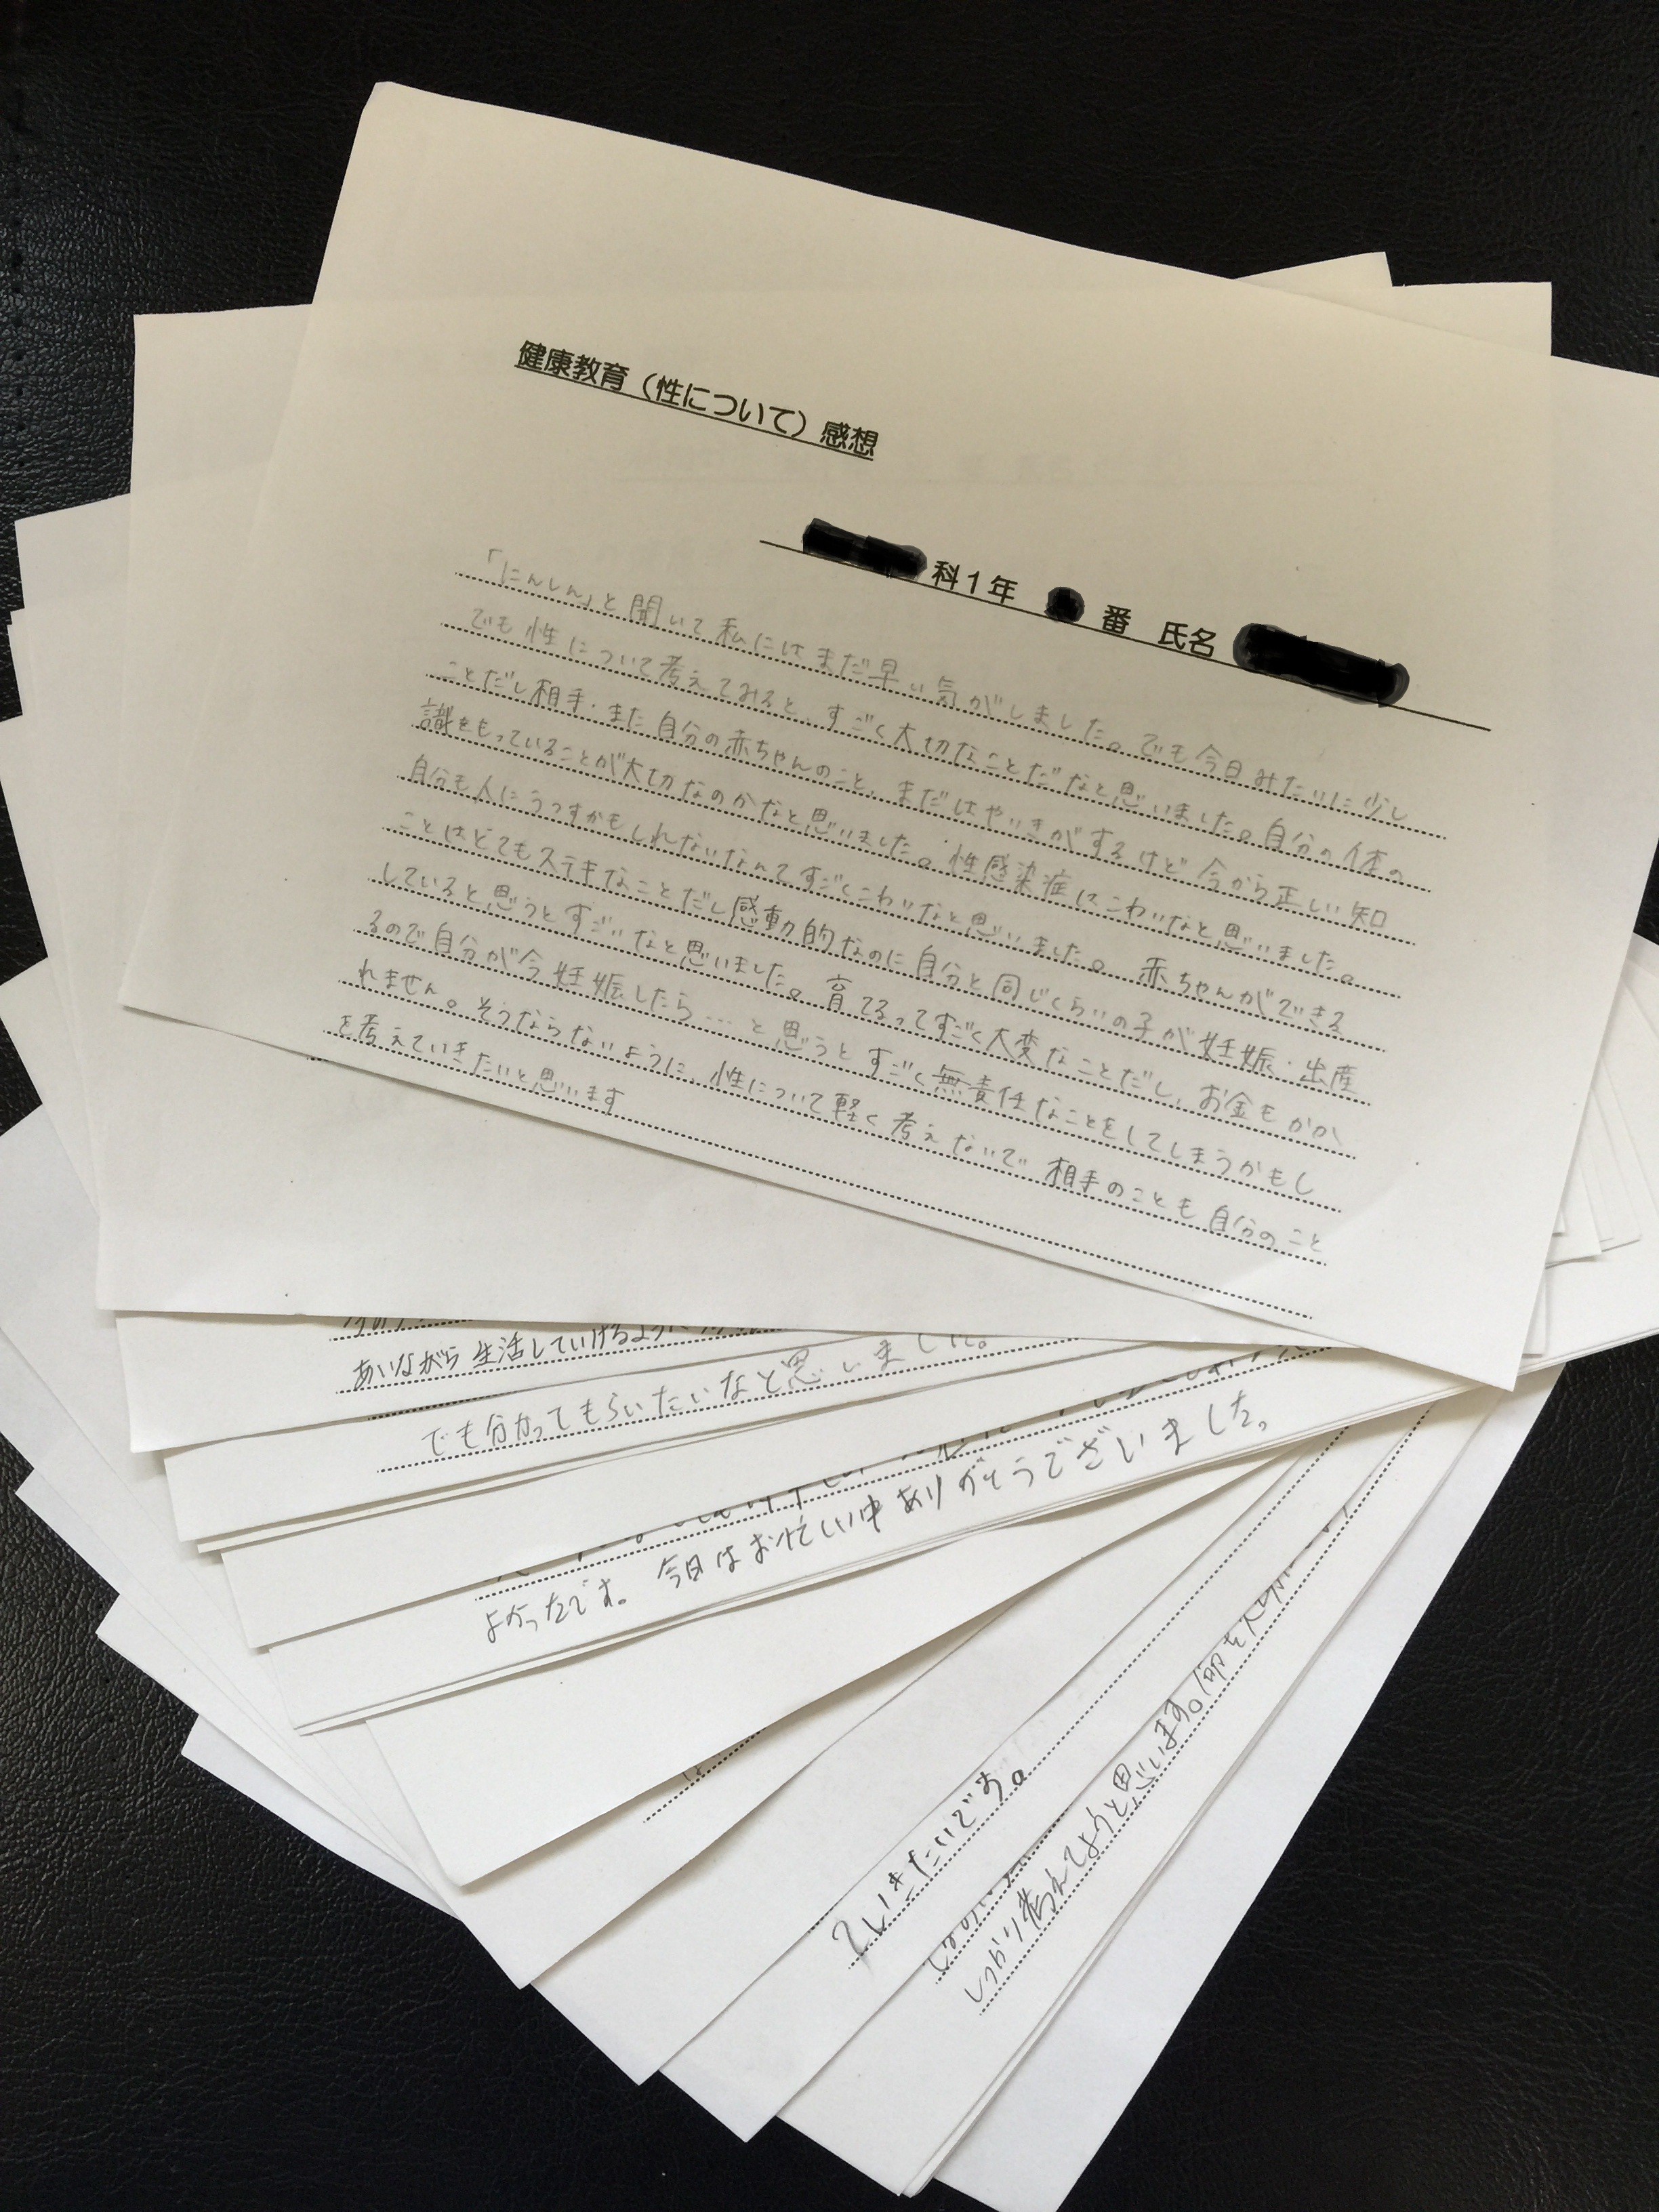 健康教育（性について）感想
科１年 番 氏名
「にんしん」と聞いて私にはまだ早い気がしました。でも今日みたいに少し
でも性について考えてみると、すごく大切なことだなと思いました。自分の体の
ことだし相手・また自分の赤ちゃんのこと、まだはやいきがするけど今から正しい知
識をもっていることが大切なのかなと思いました。性感染症はこわいなと思いました。
自分も人にうつすかもしれないなんてすごくこわいなと思いました。赤ちゃんができる
ことはとてもステキなことだし感動的なのに自分と同じくらいの子が妊娠・出産
していると思うとすごいなと思いました。育てるってすごく大変なことだし、お金もかか
るので自分が今妊娠したら…と思うとすごく無責任なことをしてしまうかもし
れません。そうならないように、性について軽く考えないで相手のことも自分のこと
を考えていきたいと思います
あいながら生活していけるように
でも分かってもらいたいなと思いました。
よかったです。今日はお忙しい中ありがとうございました。
ていきたいです。
しっかり考えてようと思います。命を